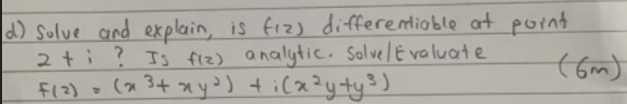 d) Solve and explain, is f(z) differentiable at point
2 + i ? Is f(z) analytic. Solve/Evaluate
f(z) = (x³ + xy²) + i(x²y + y³) (6m)